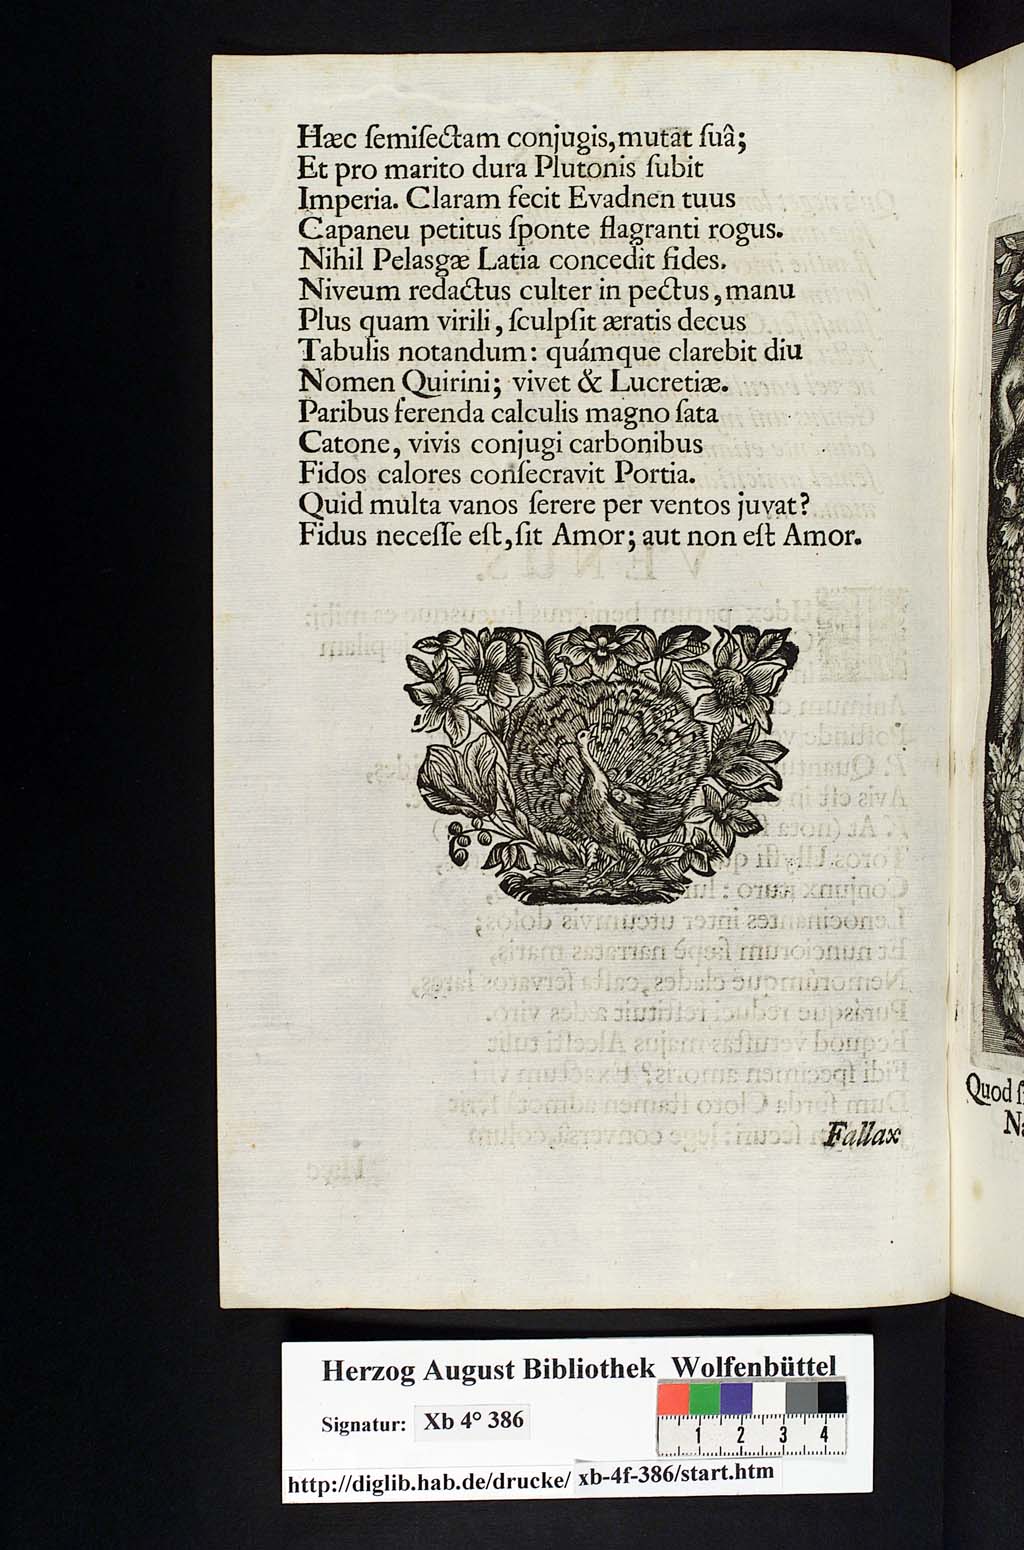 Hæc ſemiſectam conjugis, mutat ſuâ;
Et pro marito dura Plutonis ſubit
Imperia. Claram fecit Evadnen tuus
Capaneu petitus ſponte flagranti rogus.
Nihil Pelasgæ Latia concedit fides.
Niveum redactus culter in pectus, manu
Plus quam virili, ſculpſit æratis decus
Tabulis notandum: quámque clarebit diu
Nomen Quirini; vivet & Lucretiæ.
Paribus ferenda calculis magno ſata
Catone, vivis conjugi carbonibus
Fidos calores conſecravit Portia.
Quid multa vanos ſerere per ventos juvat?
Fidus neceſſe eſt, ſit Amor; aut non eſt Amor.
Fallax
Quod
Herzog August Bibliothek Wolfenbüttel
Signatur: Xb 4° 386
1 2 3 4
http://diglib.hab.de/drucke/ xb-4f-386/start.htm